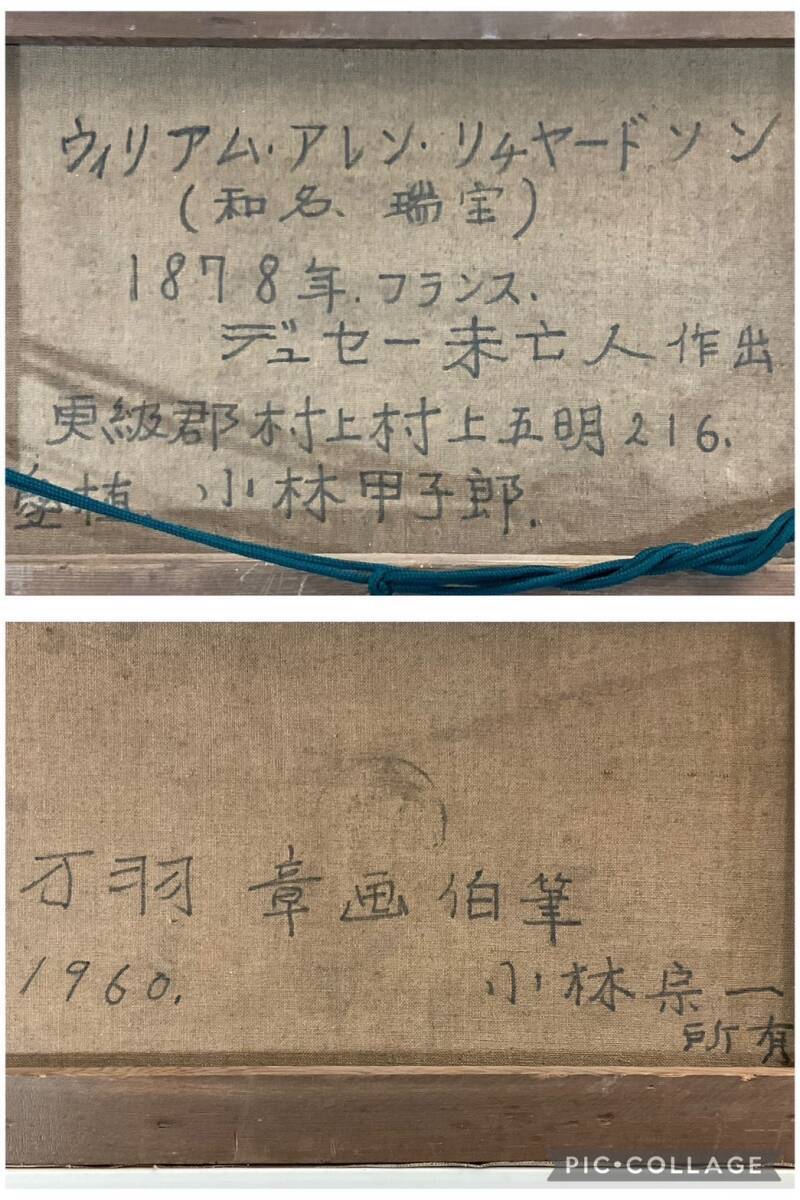 ウィリアム・アレン・リチャードソン
(和名、瑞宝)
1878年.フランス.
デュセー未亡人作出
更級郡村上村上五明216.
愛植 小林甲子郎.
万羽 章画伯筆
1960.
小林宗一
所有
PIC•COLLAGE